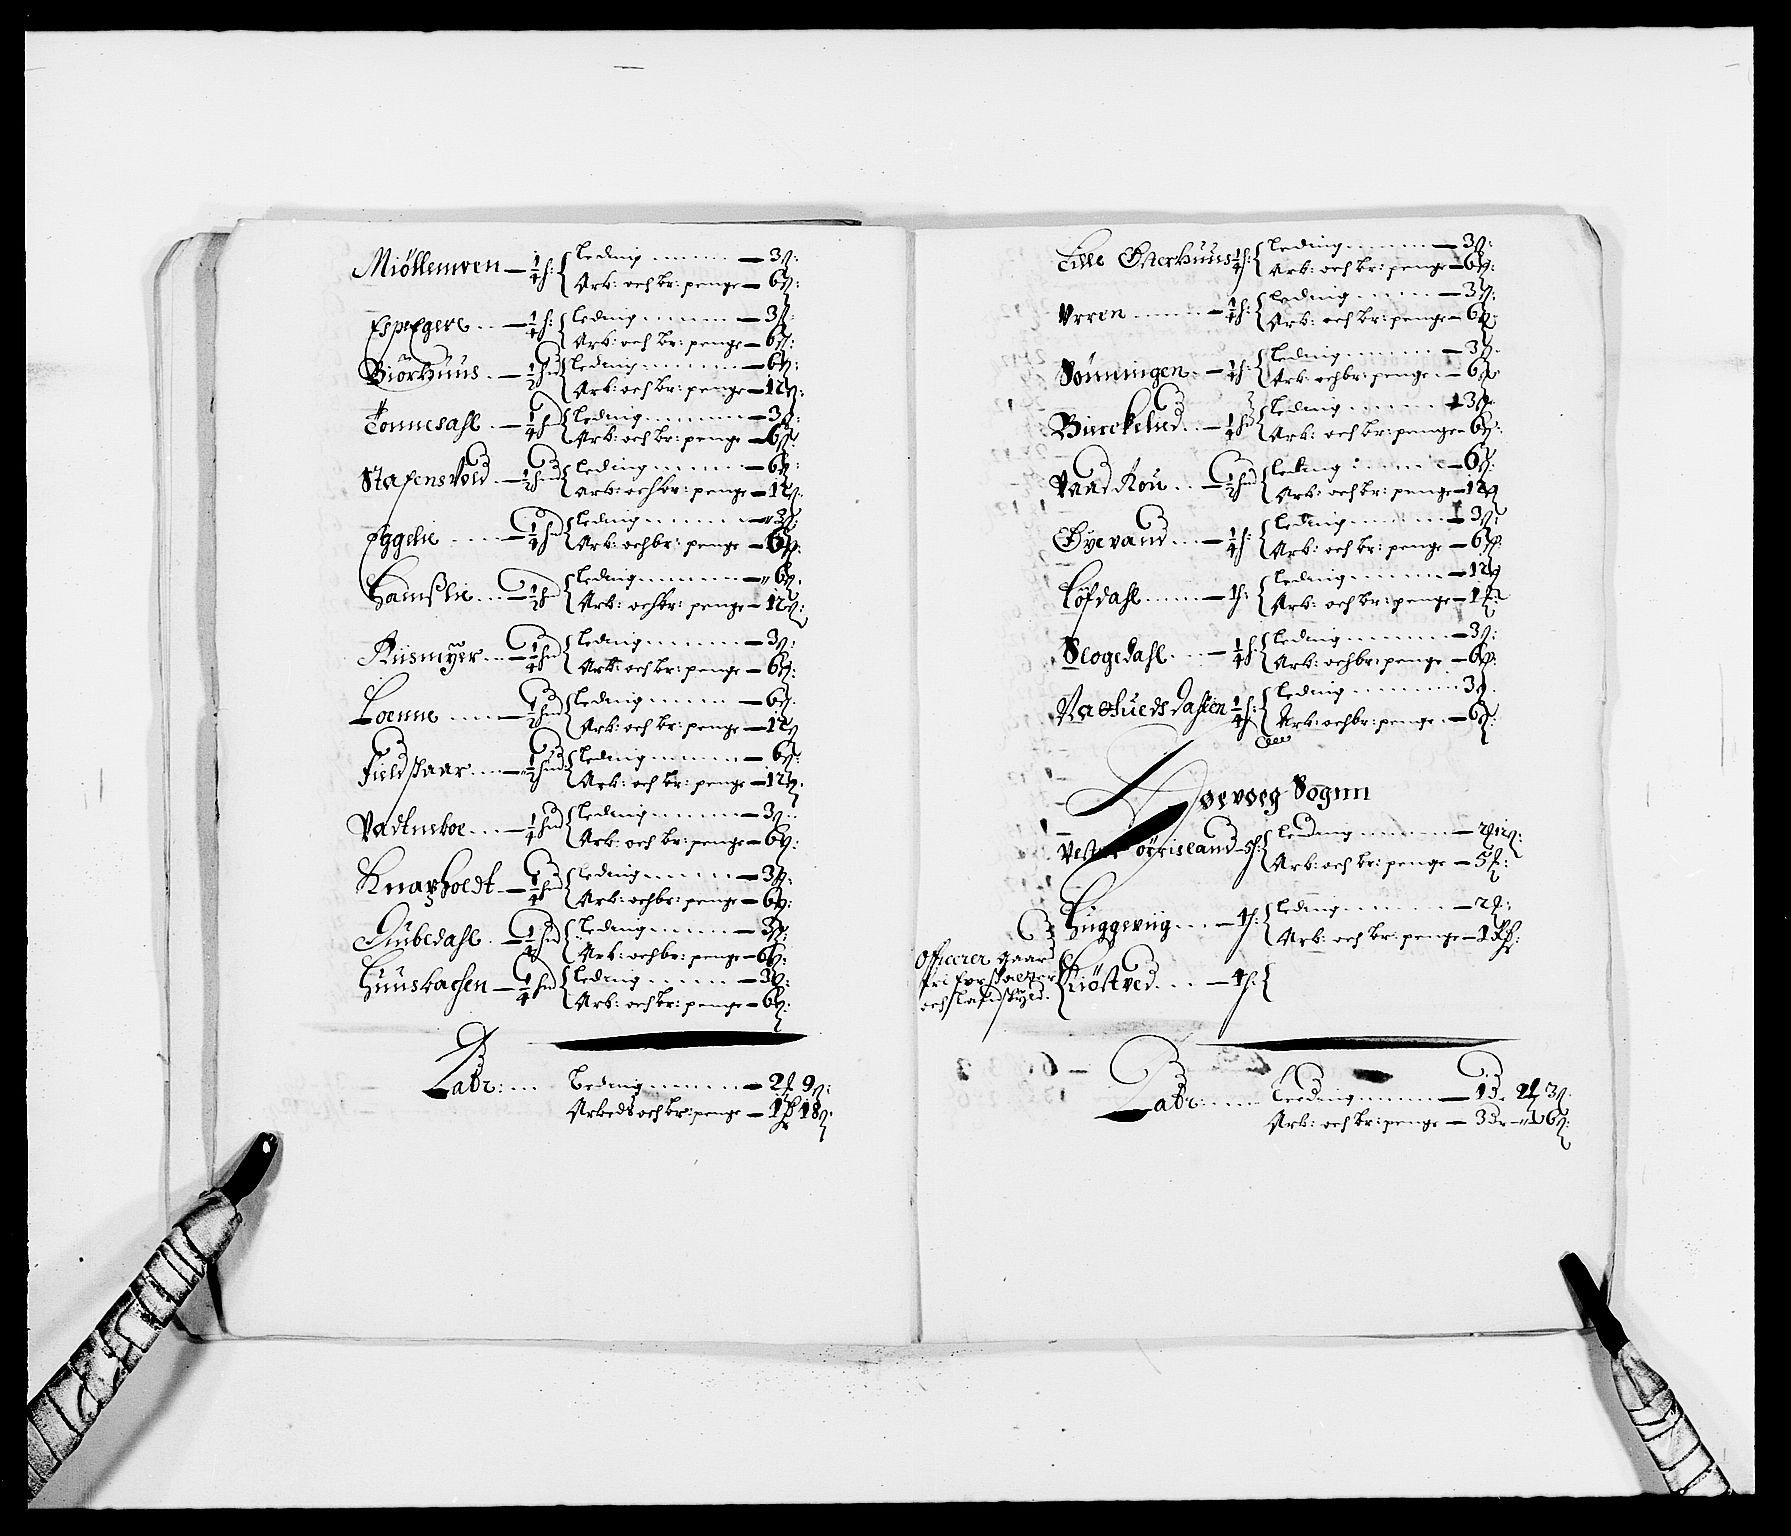 Miöllemren — 1/4 h: { leding ....... — 3 ß:
Arb: och br: penge — 6 ß:
Espegere .. — 1/4 h: { leding ....... — 3 ß:
Arb: och br: penge — 6 ß:
Biörhuus .. — 1/2 hud { leding ....... — 6 ß:
Arb: och br: penge — 12 ß:
Tonnesahl .. — 1/4 hud { leding ....... — 3 ß:
Arb: och br: penge — 6 ß
Stafensvold .. — 1/2 hud { leding ....... — 6 ß:
Arb: och br: penge — 12 ß:
Eggelie ..... — 1/4 hud { leding ....... — 3 ß:
Arb: och br: penge — 6 ß:
Hamßlie ... — 1/2 hud { leding ....... — 6 ß:
Arb: och br: penge — 12 ß:
Riismyer ... — 1/4 hud { leding ....... — 3 ß:
Arb: och br: penge — 6 ß:
Loenne ..... — 1/2 hud { leding ....... — 6 ß:
Arb: och br: penge — 12 ß
Fieldskaar .... — 1/2 hud { leding ....... — 6 ß:
Arb: och br: penge — 12 ß:
Vadtneboe .... — 1/4 hud { leding ....... — 3 ß:
Arb: och br: penge — 6 ß:
Knapholdt — 1/4 hud { leding ....... — 3 ß:
Arb: och br: penge — 6 ß:
Aubedahl .. — 1/4 hud { leding ....... — 3 ß:
Arb: och br: penge — 6 ß:
Huusbachen — 1/4 hud { leding ....... — 3 ß:
Arb: och br: penge — 6 ß:
Latr: .... Leding ....... — 2 9 ß:
Arbedt och br: penge — 1 18 ß:
Lille Østerhuus 1/4 h: { leding ....... — 3 ß:
Arb: och br: penge — 6 ß:
Urren ....... — 1/4 h: { leding ....... — 3 ß:
Arb: och br: penge — 6 ß:
Sönningen .. — 1/4 h: { leding ....... — 3 ß:
Arb: och br: penge .. — 6 ß
Birckelid .. — 1/4 hud { leding ....... — 3 ß:
Arb: och br: penge — 6 ß:
Vaad — 1/2 hud { leding ....... — 6 ß:
Arb: och br: penge — 12 ß
Øyevand ... — 1/4 h: { leding ....... — 3 ß:
Arb: och br: penge — 6 ß:
Löfdahl ...... — 1 h: { leding ....... — 12 ß
Arb: och br: penge — 1
Scogedahl .. — 1/4 h: { leding ....... — 3 ß:
Arb: och br: penge — 6 ß:
1/4 h: { leding ....... 3 ß.
Arb: och br: penge .. — 6 ß:
Høevog Sognn
Vester — 5 h: { leding ....... — 2 12 ß:
Arb: och br: penge — 5
Huggeviig .... — 4 h: { leding ....... — 2
Arb: och br: penge — 1
Officerer gaar
fri for skatter
och landskyld.
Kiöstved ... — 4 h: {
Latr: ...... Leeding ....... — 1 2 3 ß:
Arb: och br: penge — 3 6 ß: